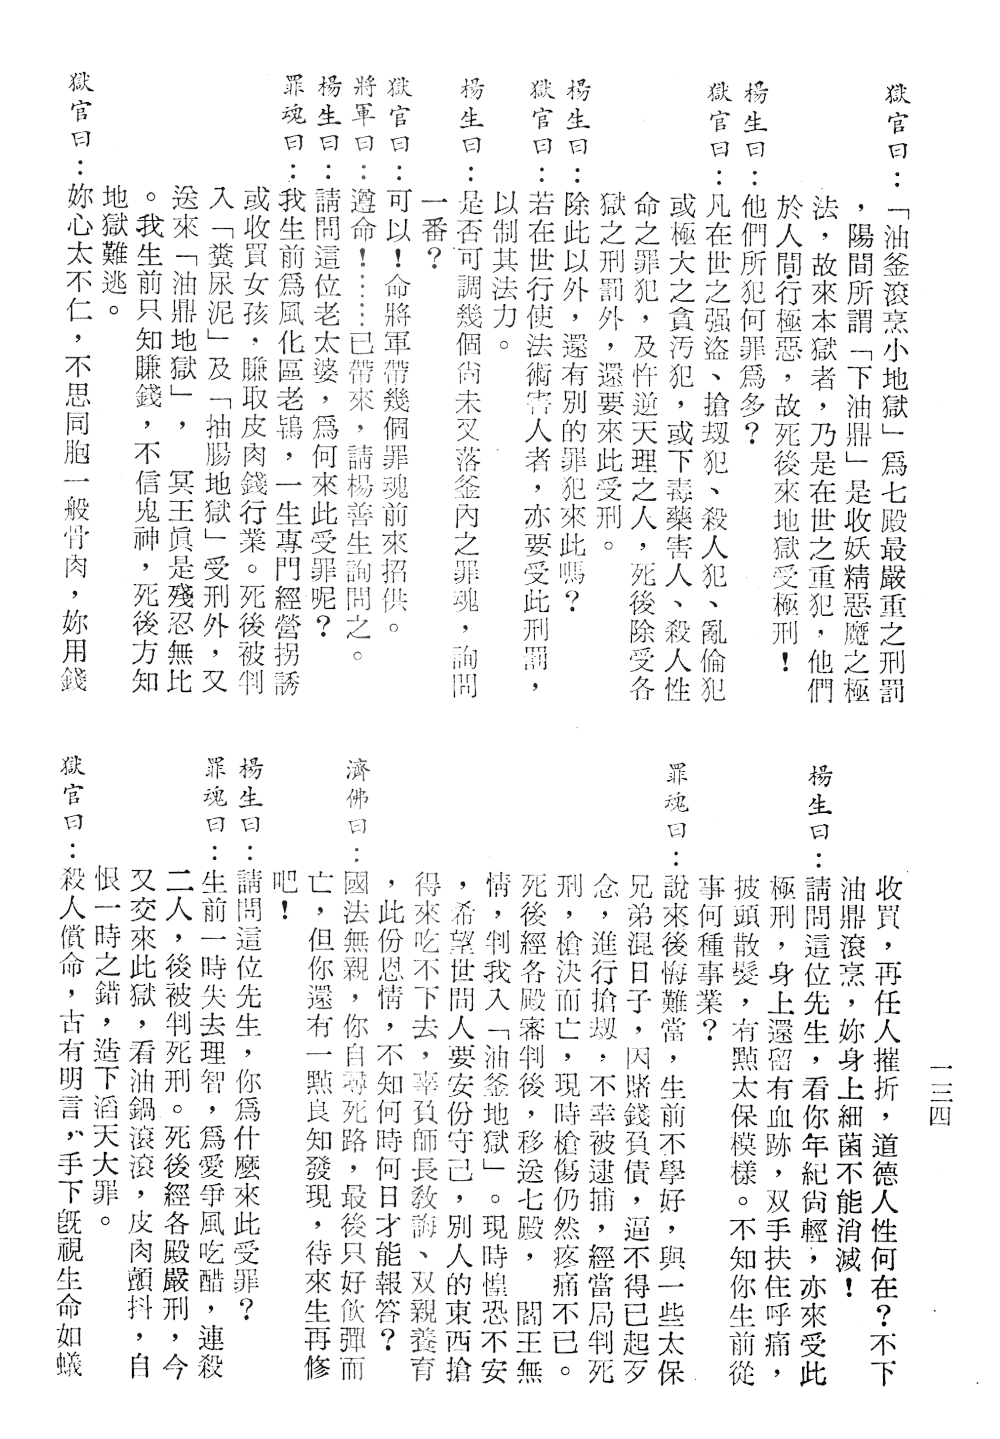 獄官曰：「油釜滾烹小地獄」爲七殿最嚴重之刑罰
，陽間所謂「下油鼎」是收妖精惡魔之極
法，故來本獄者，乃是在世之重犯，他們
於人間行極惡，故死後來地獄受極刑！
楊生曰：他們所犯何罪爲多？
獄官曰：凡在世之强盜、搶刼犯、殺人犯、亂倫犯
或極大之貪汚犯，或下毒藥害人、殺人性
命之罪犯，及忤逆天理之人，死後除受各
獄之刑罰外，還要來此受刑。
楊生曰：除此以外，還有別的罪犯來此嗎？
獄官曰：若在世行使法術害人者，亦要受此刑罰，
以制其法力。
楊生曰：是否可調幾個尙未叉落釜內之罪魂，詢問
一番？
獄官曰：可以！命將軍帶幾個罪魂前來招供。
將軍曰：遵命！……已帶來，請楊善生詢問之。
楊生曰：請問這位老太婆，爲何來此受罪呢？
罪魂曰：我生前爲風化區老鴇，一生專門經營拐誘
或收買女孩，賺取皮肉錢行業。死後被判
入「糞尿泥」及「抽腸地獄」受刑外，又
送來「油鼎地獄」，冥王眞是殘忍無比
。我生前只知賺錢，不信鬼神，死後方知
地獄難逃。
獄官曰：妳心太不仁，不思同胞一般骨肉，妳用錢
收買，再任人摧折，道德人性何在？不下
油鼎滾烹，妳身上細菌不能消滅！
楊生曰：請問這位先生，看你年紀尙輕，亦來受此
極刑，身上還留有血跡，双手扶住呼痛，
披頭散髮，有點太保模樣。不知你生前從
事何種事業？
罪魂曰：說來後悔難當，生前不學好，與一些太保
兄弟混日子，因賭錢負債，逼不得已起歹
念，進行搶刼，不幸被逮捕，經當局判死
刑，槍決而亡，現時槍傷仍然疼痛不已。
死後經各殿審判後，移送七殿，閻王無
情，判我入「油釜地獄」。現時惶恐不安
，希望世間人要安份守己，別人的東西搶
得來吃不下去，辜負師長教誨、双親養育
，此份恩情，不知何時何日才能報答？
濟佛曰：國法無親，你自尋死路，最後只好飲彈而
亡，但你還有一點良知發現，待來生再修
吧！
楊生曰：請問這位先生，你爲什麼來此受罪？
罪魂曰：生前一時失去理智，爲愛爭風吃醋，連殺
二人，後被判死刑。死後經各殿嚴刑，今
又交來此獄，看油鍋滾滾，皮肉顫抖，自
恨一時之錯，造下滔天大罪。
獄官曰：殺人償命，古有明言，手下旣視生命如蟻
一三四